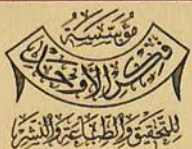 مُؤَسَّسَة
فِكْرُ الأَوْحَدِ
لِلتَّحْقِيقِ وَالطِّبَاعَةِ وَالنَّشْرِ